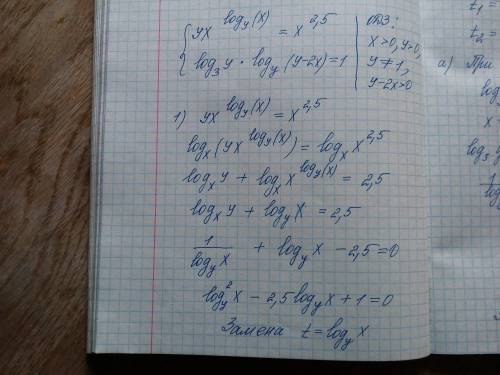 yx^{log_y(x)} = x^{2,5}
log_3 y · log_y (y-2x) = 1
ОДЗ:
x>0, y>0,
y≠1,
y-2x>0
1) yx^{log_y(x)} = x^{2,5}
log_x (yx^{log_y(x)}) = log_x x^{2,5}
log_x y + log_x x^{log_y(x)} = 2,5
log_x y + log_y x = 2,5
1/log_y x + log_y x - 2,5 = 0
log_y^2 x - 2,5 log_y x + 1 = 0
Замена t = log_y x
t_1 =
t_2 =
а) При
log
x =
log_3 y